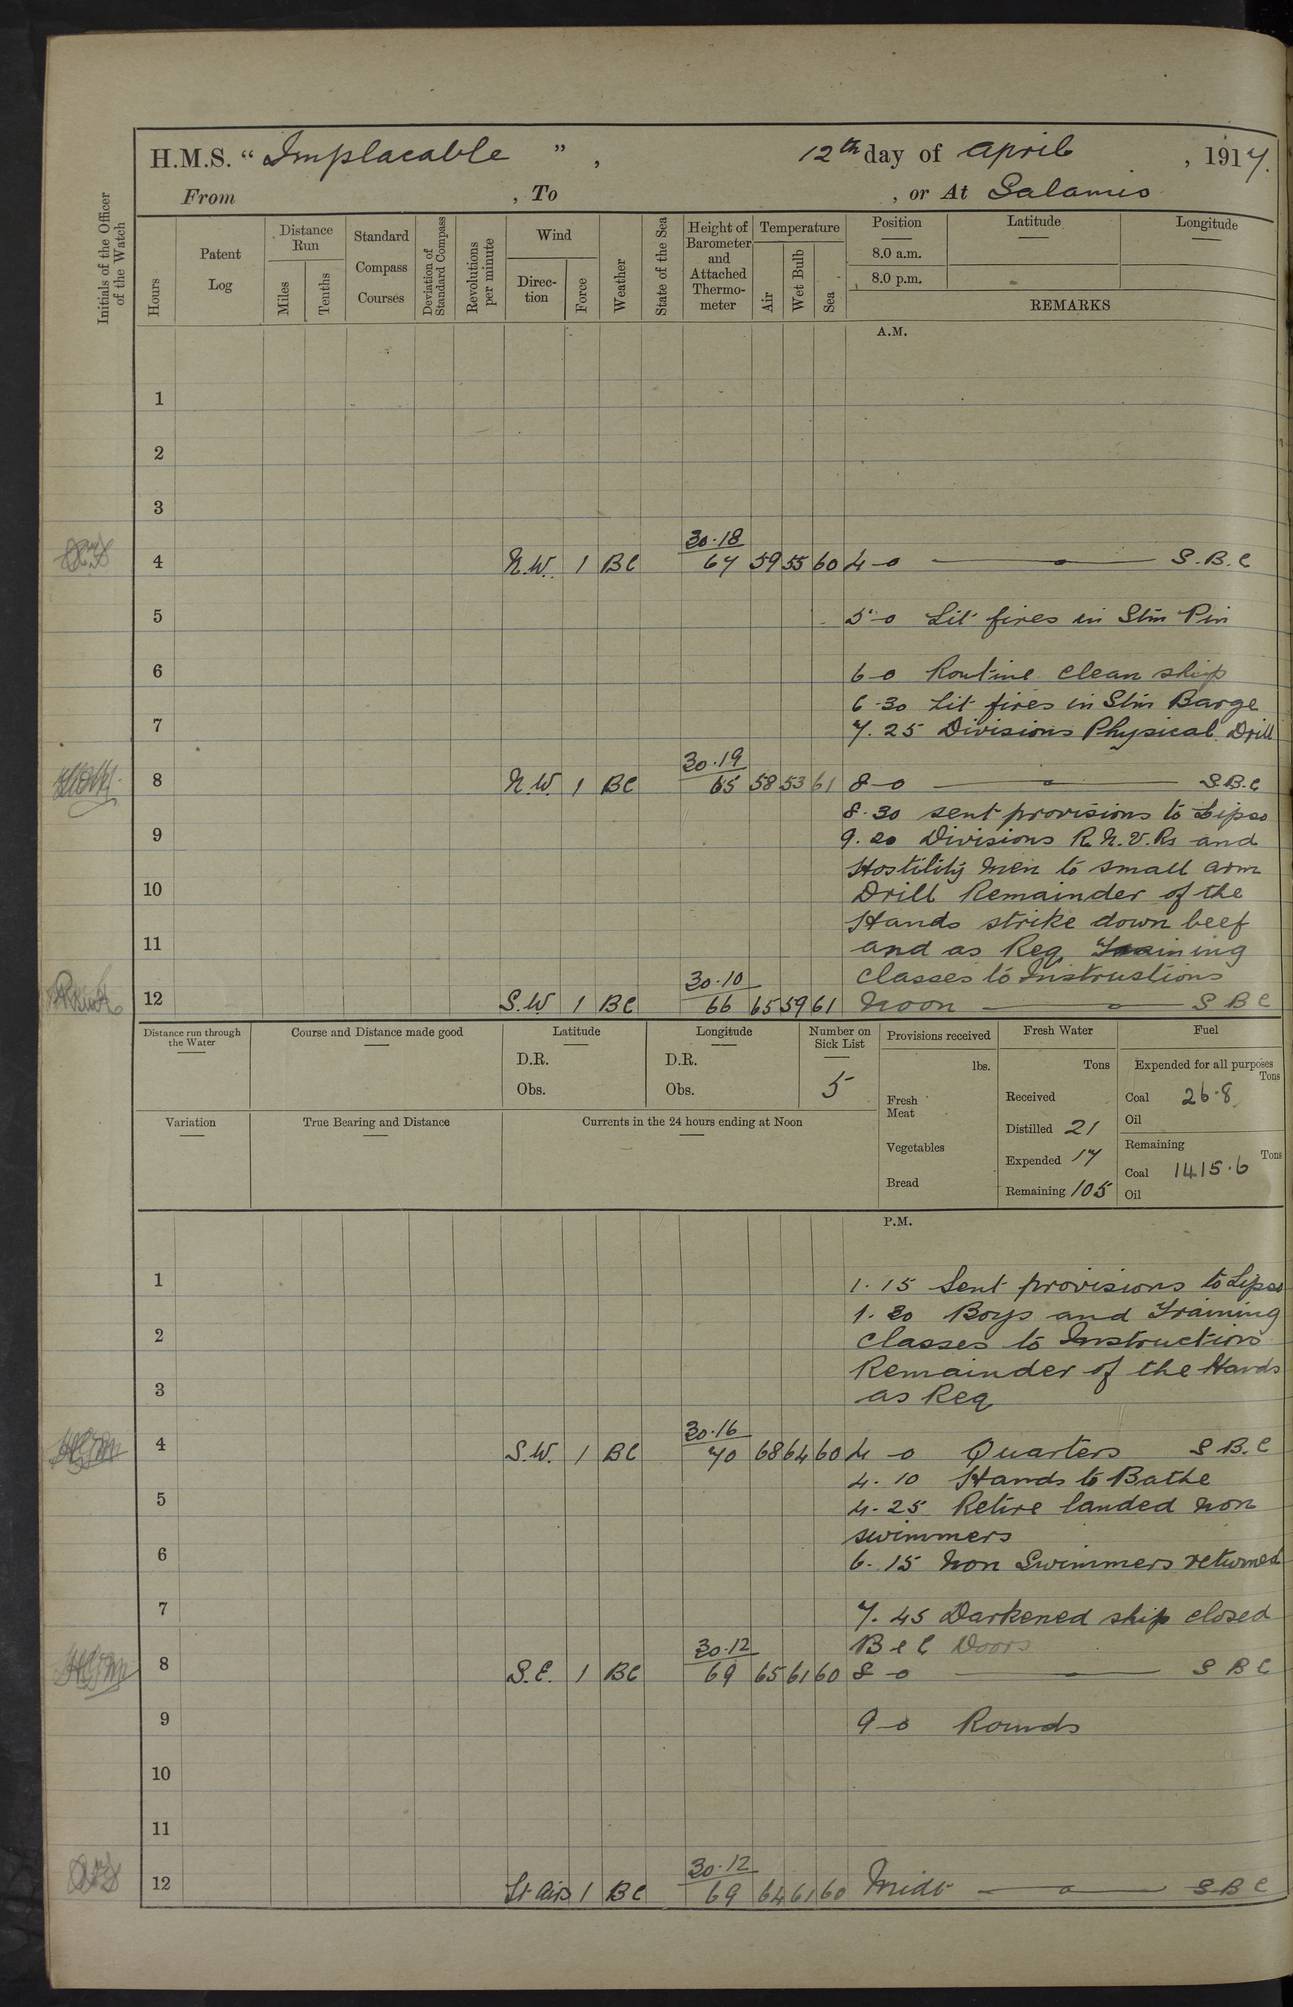 H.M.S. "Implacable", 12th day of April, 1917.
From , To , or At Salamis
Initials of the Officer of the Watch
Hours
Patent Log
Distance Run
Miles
Tenths
Standard Compass Courses
Deviation of Standard Compass
Revolutions per minute
Wind
Direction
Force
Weather
State of the Sea
Height of Barometer and Attached Thermometer
Temperature
Air
Wet Bulb
Sea
Position
Latitude
Longitude
8.0 a.m.
8.0 p.m.
REMARKS
A.M.
1
2
3
30.18
4 N.W. 1 BC 67 59 55 60 4-0 S.B.C
5 5-0 Lit fires in Stm Pin
6 6-0 Routine clean ship
6-30 Lit fires in Stm Barge
7 7.25 Divisions Physical Drill
30.19
8 N.W. 1 BC 65 58 53 61 8-0 S.B.C
8.30 sent provisions to Lipso
9 9.20 Divisions R.N.V.Rs and
Hostility men to small arm
10 Drill Remainder of the
Hands strike down beef
11 and as Req Training
30.10 classes to Instrustions
12 S.W 1 BC 66 65 59 61 Noon S B C
Distance run through the Water
Course and Distance made good
Latitude
D.R.
Obs.
Longitude
D.R.
Obs.
Number on Sick List
5
Provisions received
lbs.
Fresh Meat
Vegetables
Bread
Fresh Water
Tons
Received
Distilled 21
Expended 17
Remaining 105
Fuel
Expended for all purposes
Tons
Coal 26.8
Oil
Remaining
Tons
Coal 1415.6
Oil
Variation
True Bearing and Distance
Currents in the 24 hours ending at Noon
P.M.
1 1.15 Sent provisions to Lipso
1.30 Boys and Training
2 Classes to Instruction
Remainder of the Hands
3 as Req
30.16
4 S.W. 1 BC 70 68 64 60 4-0 Quarters S B.C
4.10 Hands to Bathe
5 4.25 Retire landed non
swimmers
6 6.15 Non Swimmers returned
7 7.45 Darkened ship closed
30.12 B & C Doors
8 S.E. 1 BC 69 65 61 60 8-0 S B C
9 9-0 Rounds
10
11
30.12
12 Lt airs 1 BC 69 64 61 60 Midt S B C